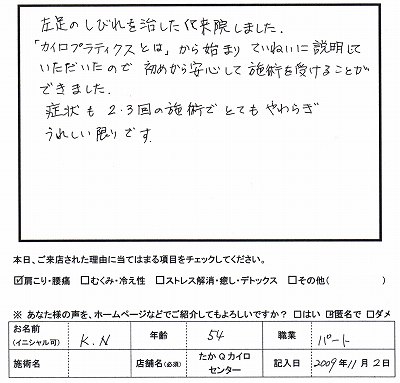 左足のしびれを治したく来院しました.
「カイロプラティクスとは」から始まり ていねいに説明して
いただいたので 初めから安心して施術を受けることが
できました.
症状も 2・3回の施術でとてもやわらぎ
うれしい限りです.
本日、ご来店された理由に当てはまる項目をチェックしてください。
☑肩こり・腰痛 □むくみ・冷え性 □ストレス解消・癒し・デトックス □その他( )
※ あなた様の声を、ホームページなどでご紹介してもよろしいですか? □はい ☑匿名で □ダメ
お名前 (イニシャル可) K.N 年齢 54 職業 パート
施術名 店舗名(必須) たかQカイロセンター 記入日 2009年11月2日